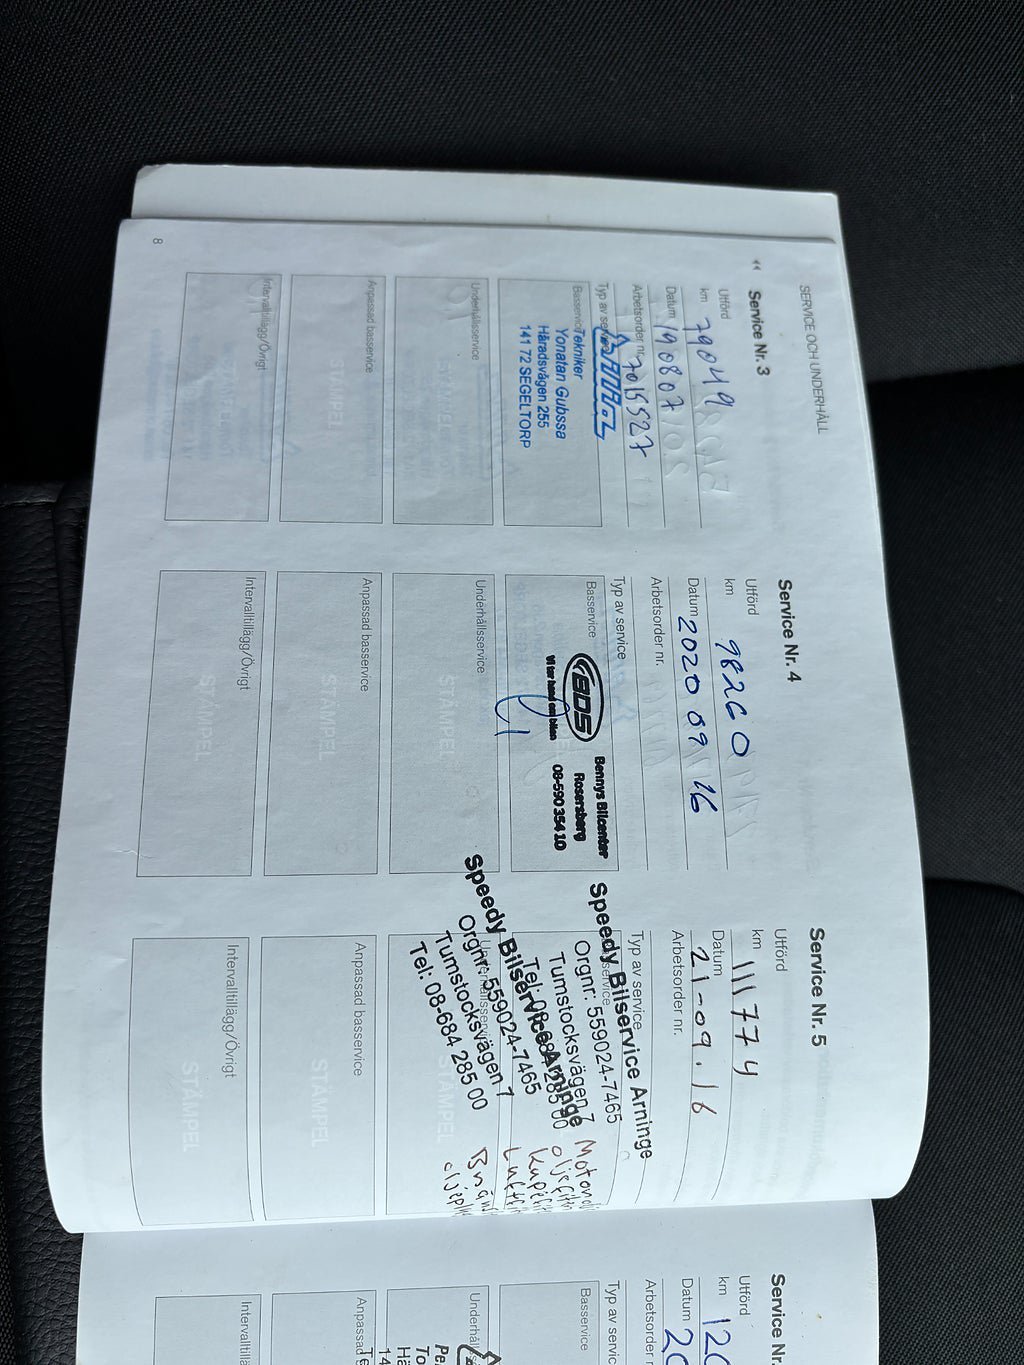 SERVICE OCH UNDERHÅLL
<< Service Nr. 3
Utförd
km 79049
Datum 190807
Arbetsorder nr. 7015527
Typ av service
Basservice
Tekniker
Yonatan Gubssa
Häradsvägen 255
141 72 SEGELTORP
Underhållsservice
STÄMPEL
Anpassad basservice
STÄMPEL
Intervalltillägg/Övrigt
8
Service Nr. 4
Utförd
km 98260
Datum 2020 09 16
Arbetsorder nr.
Typ av service
Basservice
BDS
Vi tar hand om bilen
Bennys Bilcenter
Rosersberg
08-590 354 10
Underhållsservice
STÄMPEL
Anpassad basservice
STÄMPEL
Intervalltillägg/Övrigt
STÄMPEL
Service Nr. 5
Utförd
km 111774
Datum 21-09.16
Arbetsorder nr.
Typ av service
Speedy Bilservice Arninge
Orgnr: 559024-7465
Tumstocksvägen 7
Tel: 08-684 285 00
Speedy Bilservice Arninge
Orgnr: 559024-7465
Tumstocksvägen 7
Tel: 08-684 285 00
STÄMPEL
Anpassad basservice
STÄMPEL
Intervalltillägg/Övrigt
STÄMPEL
Service Nr.
Utförd
km 12
Datum 20
Arbetsorder
Typ av servic
Basservice
Underhålls
Anpassad
Intervalltillä